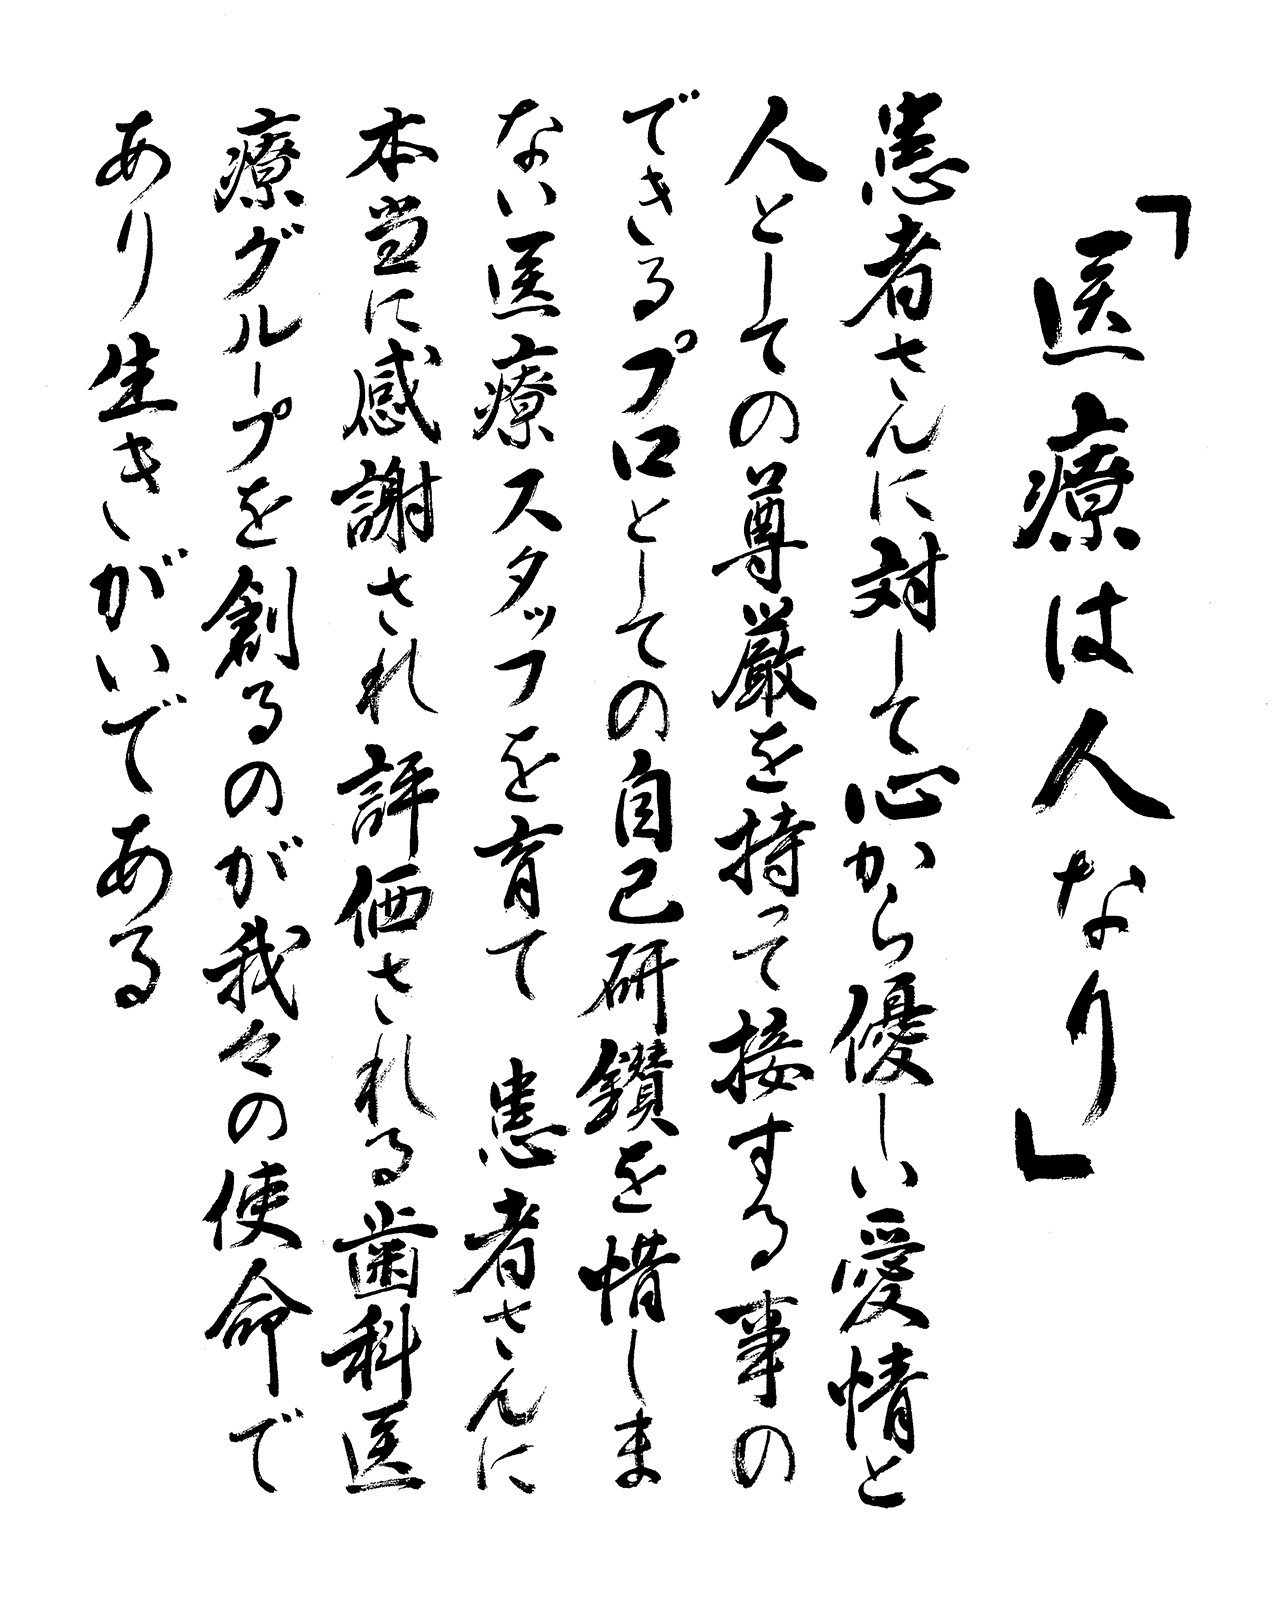 「医療は人なり」
患者さんに対して心から優しい愛情と
人としての尊厳を持って接する事の
できるプロとしての自己研鑽を惜しま
ない医療スタッフを育て　患者さんに
本当に感謝され評価される歯科医
療グループを創るのが我々の使命で
あり生きがいである